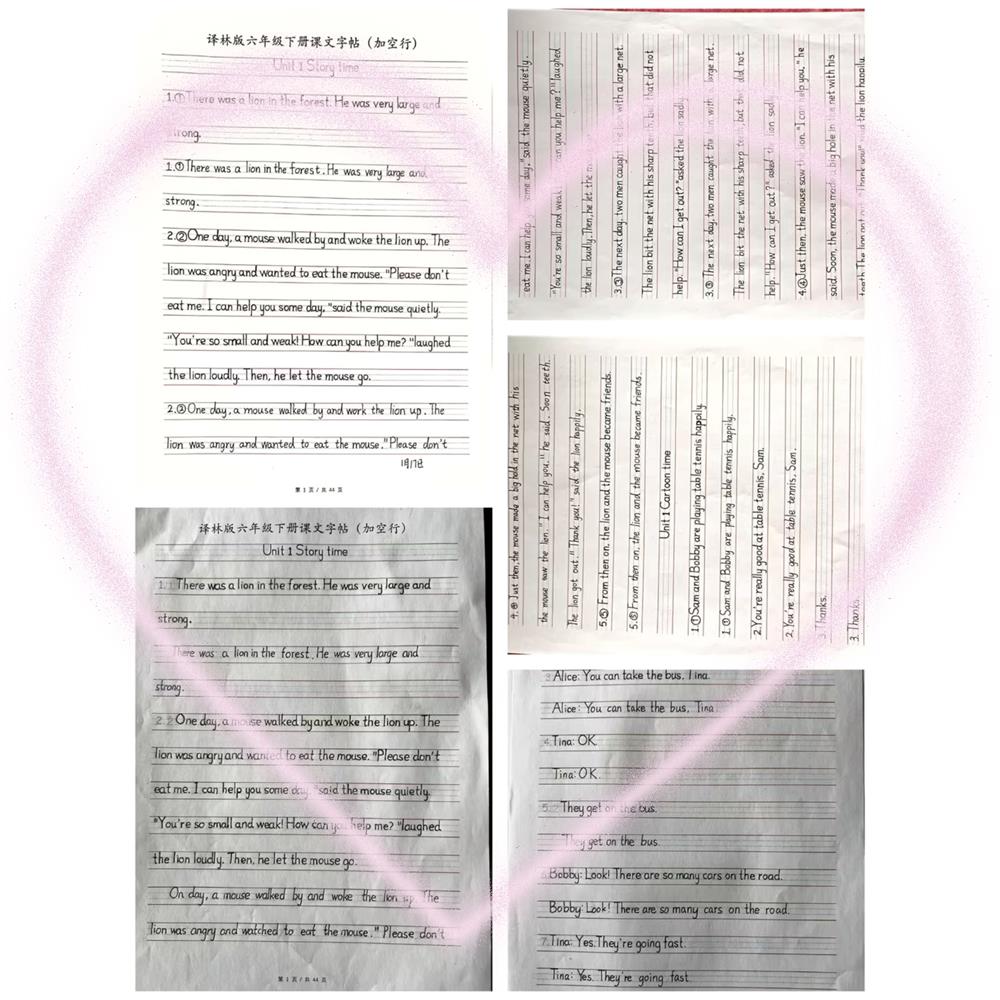 译林版六年级下册课文字帖（加空行）
Unit 1 Story time
1.①There was a lion in the forest. He was very large and
strong.
1.①There was a lion in the forest. He was very large and
strong.
2.②One day, a mouse walked by and woke the lion up. The
lion was angry and wanted to eat the mouse. "Please don't
eat me. I can help you some day, "said the mouse quietly.
"You're so small and weak! How can you help me? "laughed
the lion loudly. Then, he let the mouse go.
2.②One day, a mouse walked by and work the lion up. The
lion was angry and wanted to eat the mouse." Please don't
1月17日
第 1 页 / 共 44 页
译林版六年级下册课文字帖（加空行）
Unit 1 Story time
1. There was a lion in the forest. He was very large and
strong.
There was a lion in the forest. He was very large and
strong.
2. One day, a mouse walked by and woke the lion up. The
lion was angry and wanted to eat the mouse. "Please don't
eat me. I can help you some day, "said the mouse quietly.
"You're so small and weak! How can you help me? "laughed
the lion loudly. Then, he let the mouse go.
On day, a mouse walked by and woke the lion up. The
lion was angry and watched to eat the mouse." Please don't
第 1 页 / 共 44 页
eat me. I can help you some day,"said the mouse quietly.
"You're so small and weak can you help me?" laughed
the lion loudly. Then, he let the m
3.③The next day, two men caught the lion with a large net.
The lion bit the net with his sharp teeth, but that did not
help. "How can I get out? "asked the lion sadly.
3.③ The next day, two men caught the lion with a large net.
The lion bit the net with his sharp teeth, but that did not
help. "How can I get out?" asked the lion sadly.
4.④Just then, the mouse saw the lion. "I can help you, " he
said. Soon, the mouse made a big hole in the net with his
teeth. The lion got out. "Thank you!" said the lion happily.
4.④ Just then, the mouse made a big hold in the net with his
the mouse saw the lion. " I can help you." he said. Soon teeth.
The lion got out." Thank you!" said the lion happily.
5.⑤ From then on, the lion and the mouse became friends.
5.⑤ From then on, the lion and the mouse became friends.
Unit 1 Cartoon time
1.①Sam and Bobby are playing table tennis happily.
1.①Sam and Bobby are playing table tennis happily.
2.You're really good at table tennis, Sam.
2. You're really good at table tennis, Sam.
3. Thanks.
3. Thanks.
3 Alice: You can take the bus, Tina.
Alice: You can take the bus, Tina.
4 Tina: OK.
Tina: OK.
5. They get on the bus.
They get on the bus.
Bobby: Look! There are so many cars on the road.
Bobby: Look! There are so many cars on the road.
7. Tina: Yes. They're going fast.
Tina: Yes. They're going fast